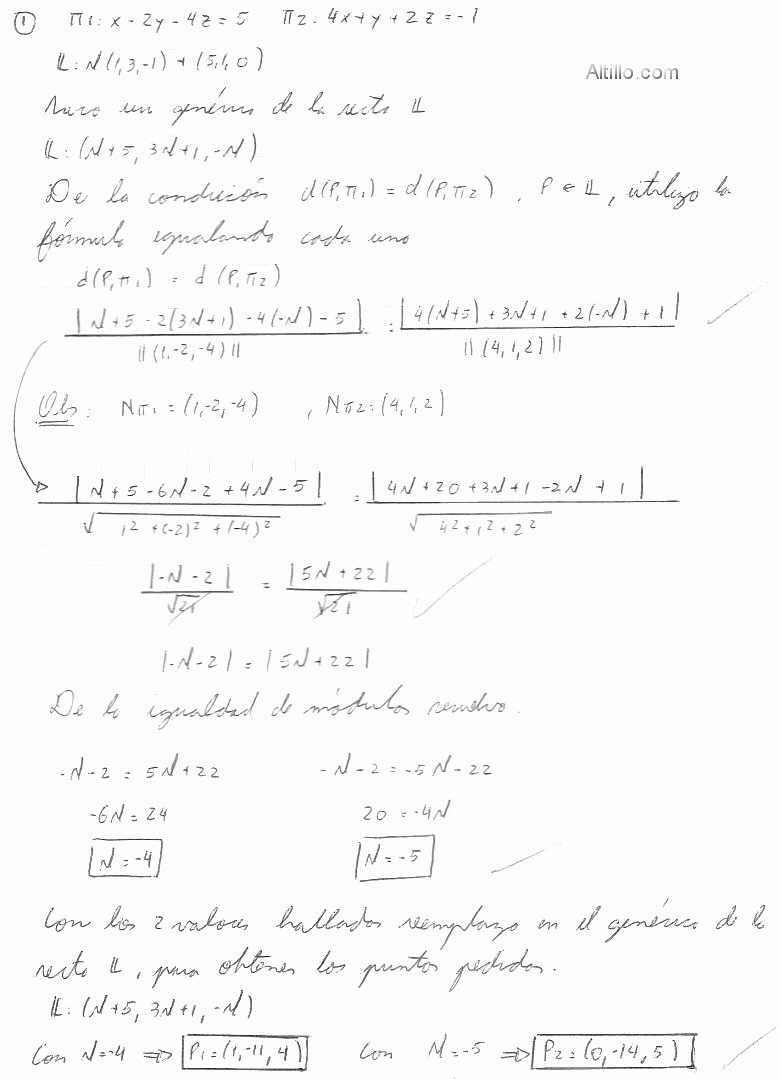 ① π1: x - 2y - 4z = 5   π2: 4x + y + 2z = -1
𝕃: λ(1,3,-1) + (5,1,0)
Altillo.com
Armo un genérico de la recta 𝕃
𝕃: (λ+5, 3λ+1, -λ)
De la condición d(P,π1) = d(P,π2), P ∈ 𝕃, utilizo la
fórmula igualando cada uno
d(P,π1) = d(P,π2)
|λ+5 - 2(3λ+1) - 4(-λ) - 5| / ||(1,-2,-4)|| = |4(λ+5) + 3λ+1 + 2(-λ) + 1| / ||(4,1,2)||
Obs: Nπ1 = (1,-2,-4) , Nπ2 = (4,1,2)
|λ+5 - 6λ - 2 + 4λ - 5| / √(1² + (-2)² + (-4)²) = |4λ+20 + 3λ+1 - 2λ + 1| / √(4² + 1² + 2²)
|-λ - 2| / √21 = |5λ + 22| / √21
|-λ-2| = |5λ+22|
De la igualdad de módulos resuelvo.
-λ-2 = 5λ+22   -λ-2 = -5λ-22
-6λ = 24   20 = -4λ
λ = -4   λ = -5
Con los 2 valores hallados reemplazo en el genérico de la
recta 𝕃, para obtener los puntos pedidos.
𝕃: (λ+5, 3λ+1, -λ)
Con λ=-4 ⇒ P1 = (1,-11,4)   Con λ=-5 ⇒ P2 = (0,-14,5)